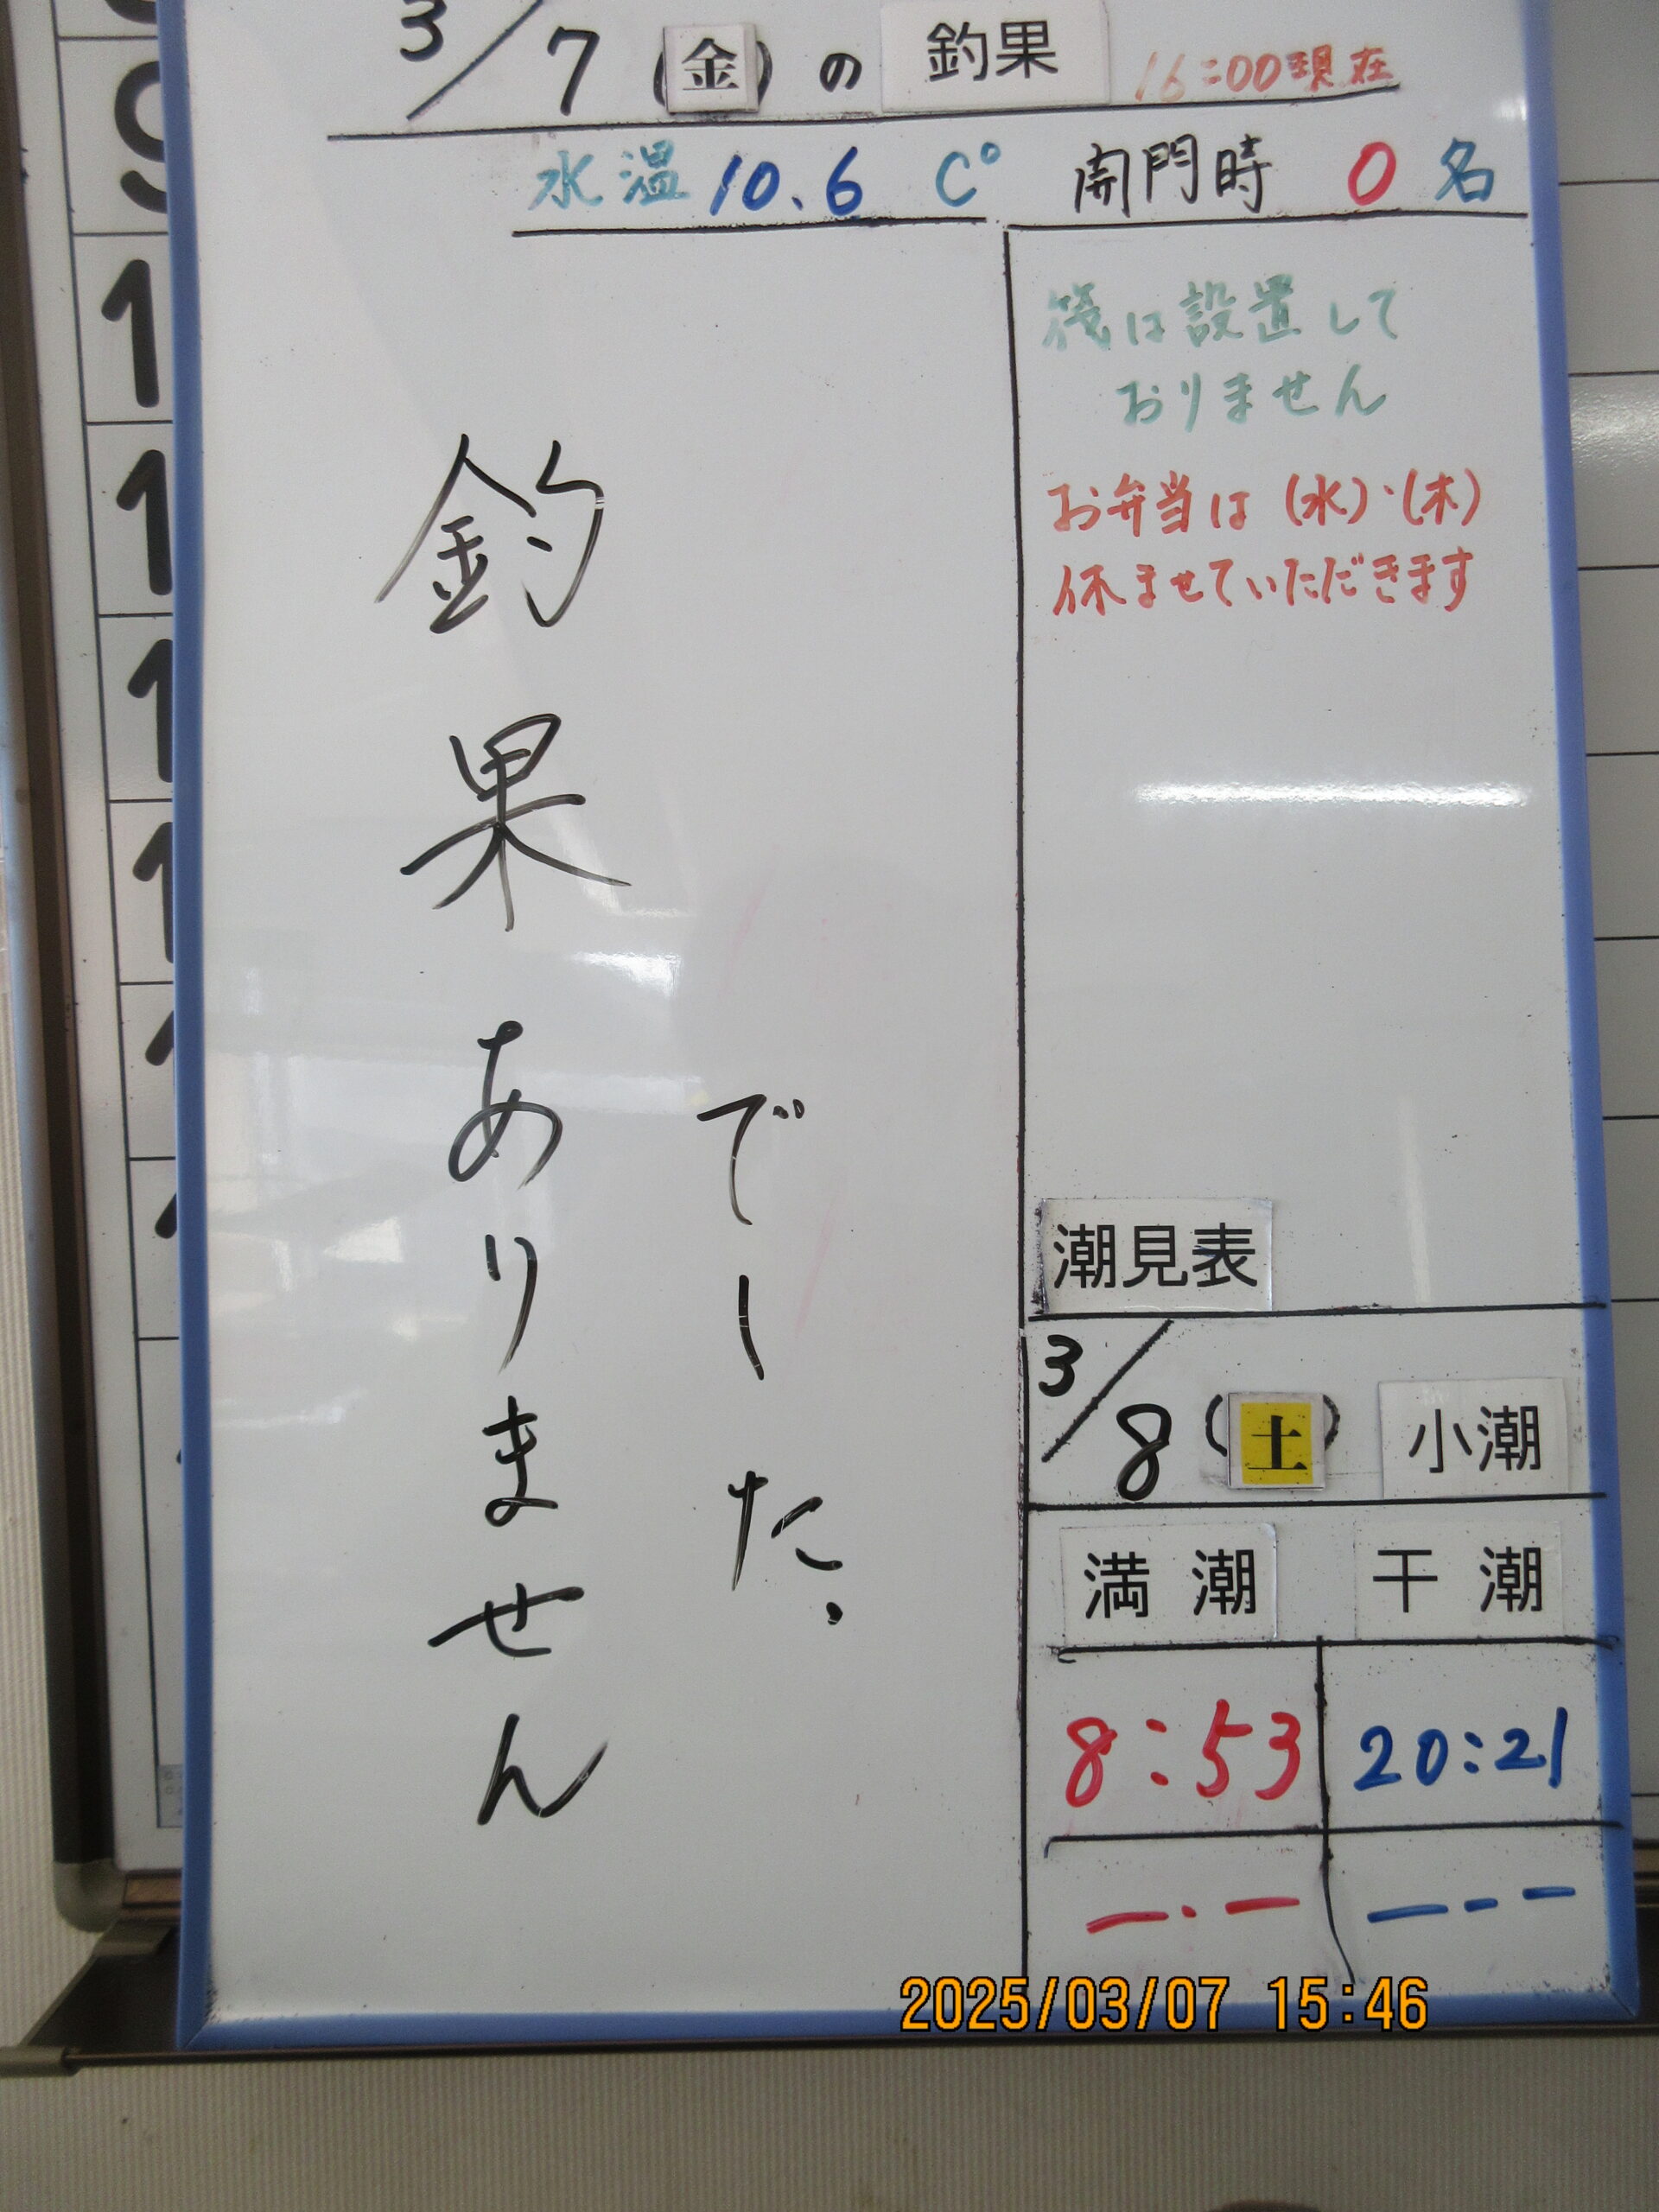 3/7(金)の 釣果 16:00現在
水温 10.6 C° 開門時 0名
筏は設置して
おりません
お弁当は(水)・(木)
休ませていただきます
釣果ありません
でした。
潮見表
3/8(土) 小潮
満潮 干潮
8:53 20:21
—・— —--
2025/03/07 15:46